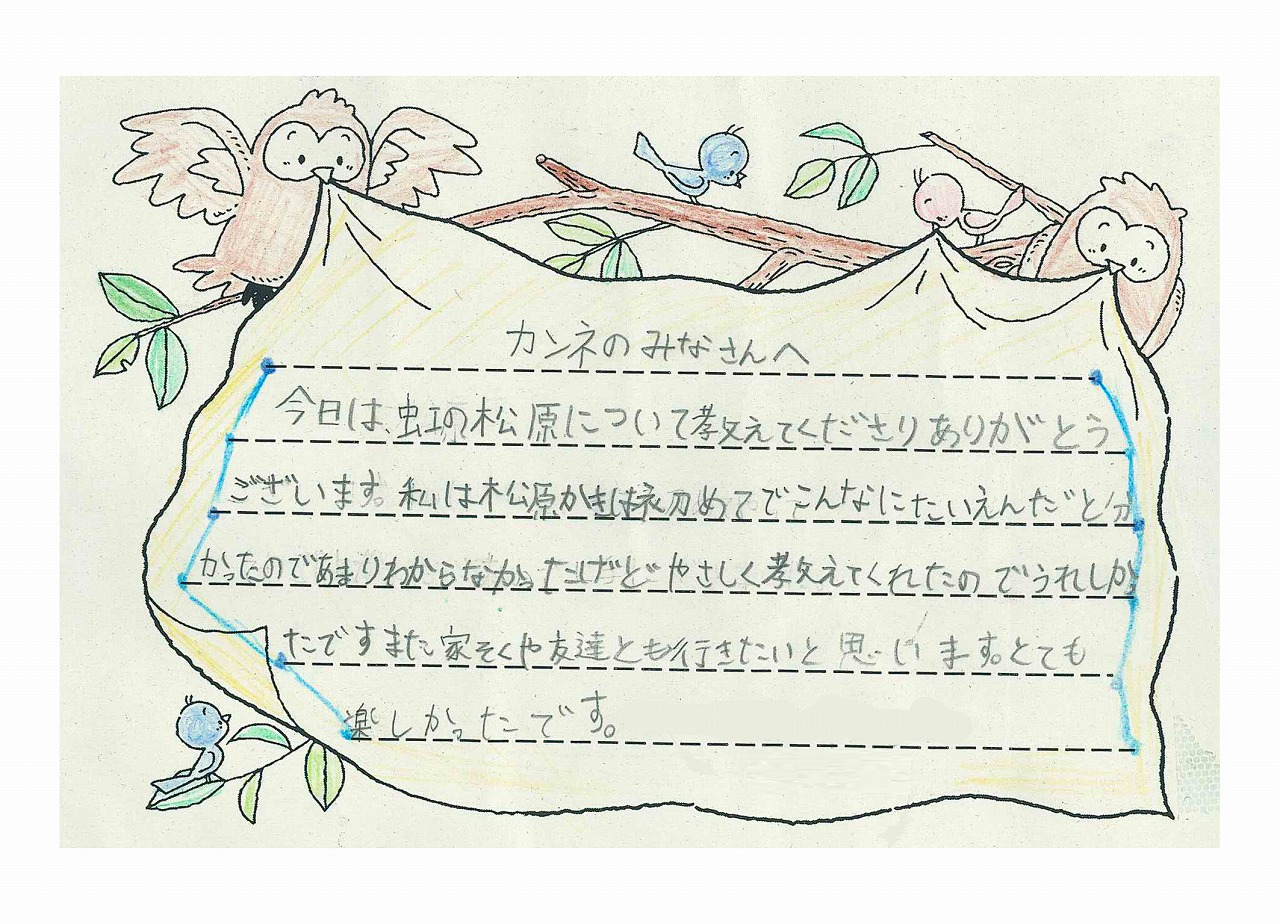 カンネのみなさんへ
今日は、虹の松原について教えてくださりありがとう
ございます。私は松原かきは初めてでこんなにたいえんだと分
かったのであまりわからなかったけどやさしく教えてくれたのでうれしか
たですまた家そくや友達とも行きたいと思います。とても
楽しかったです。